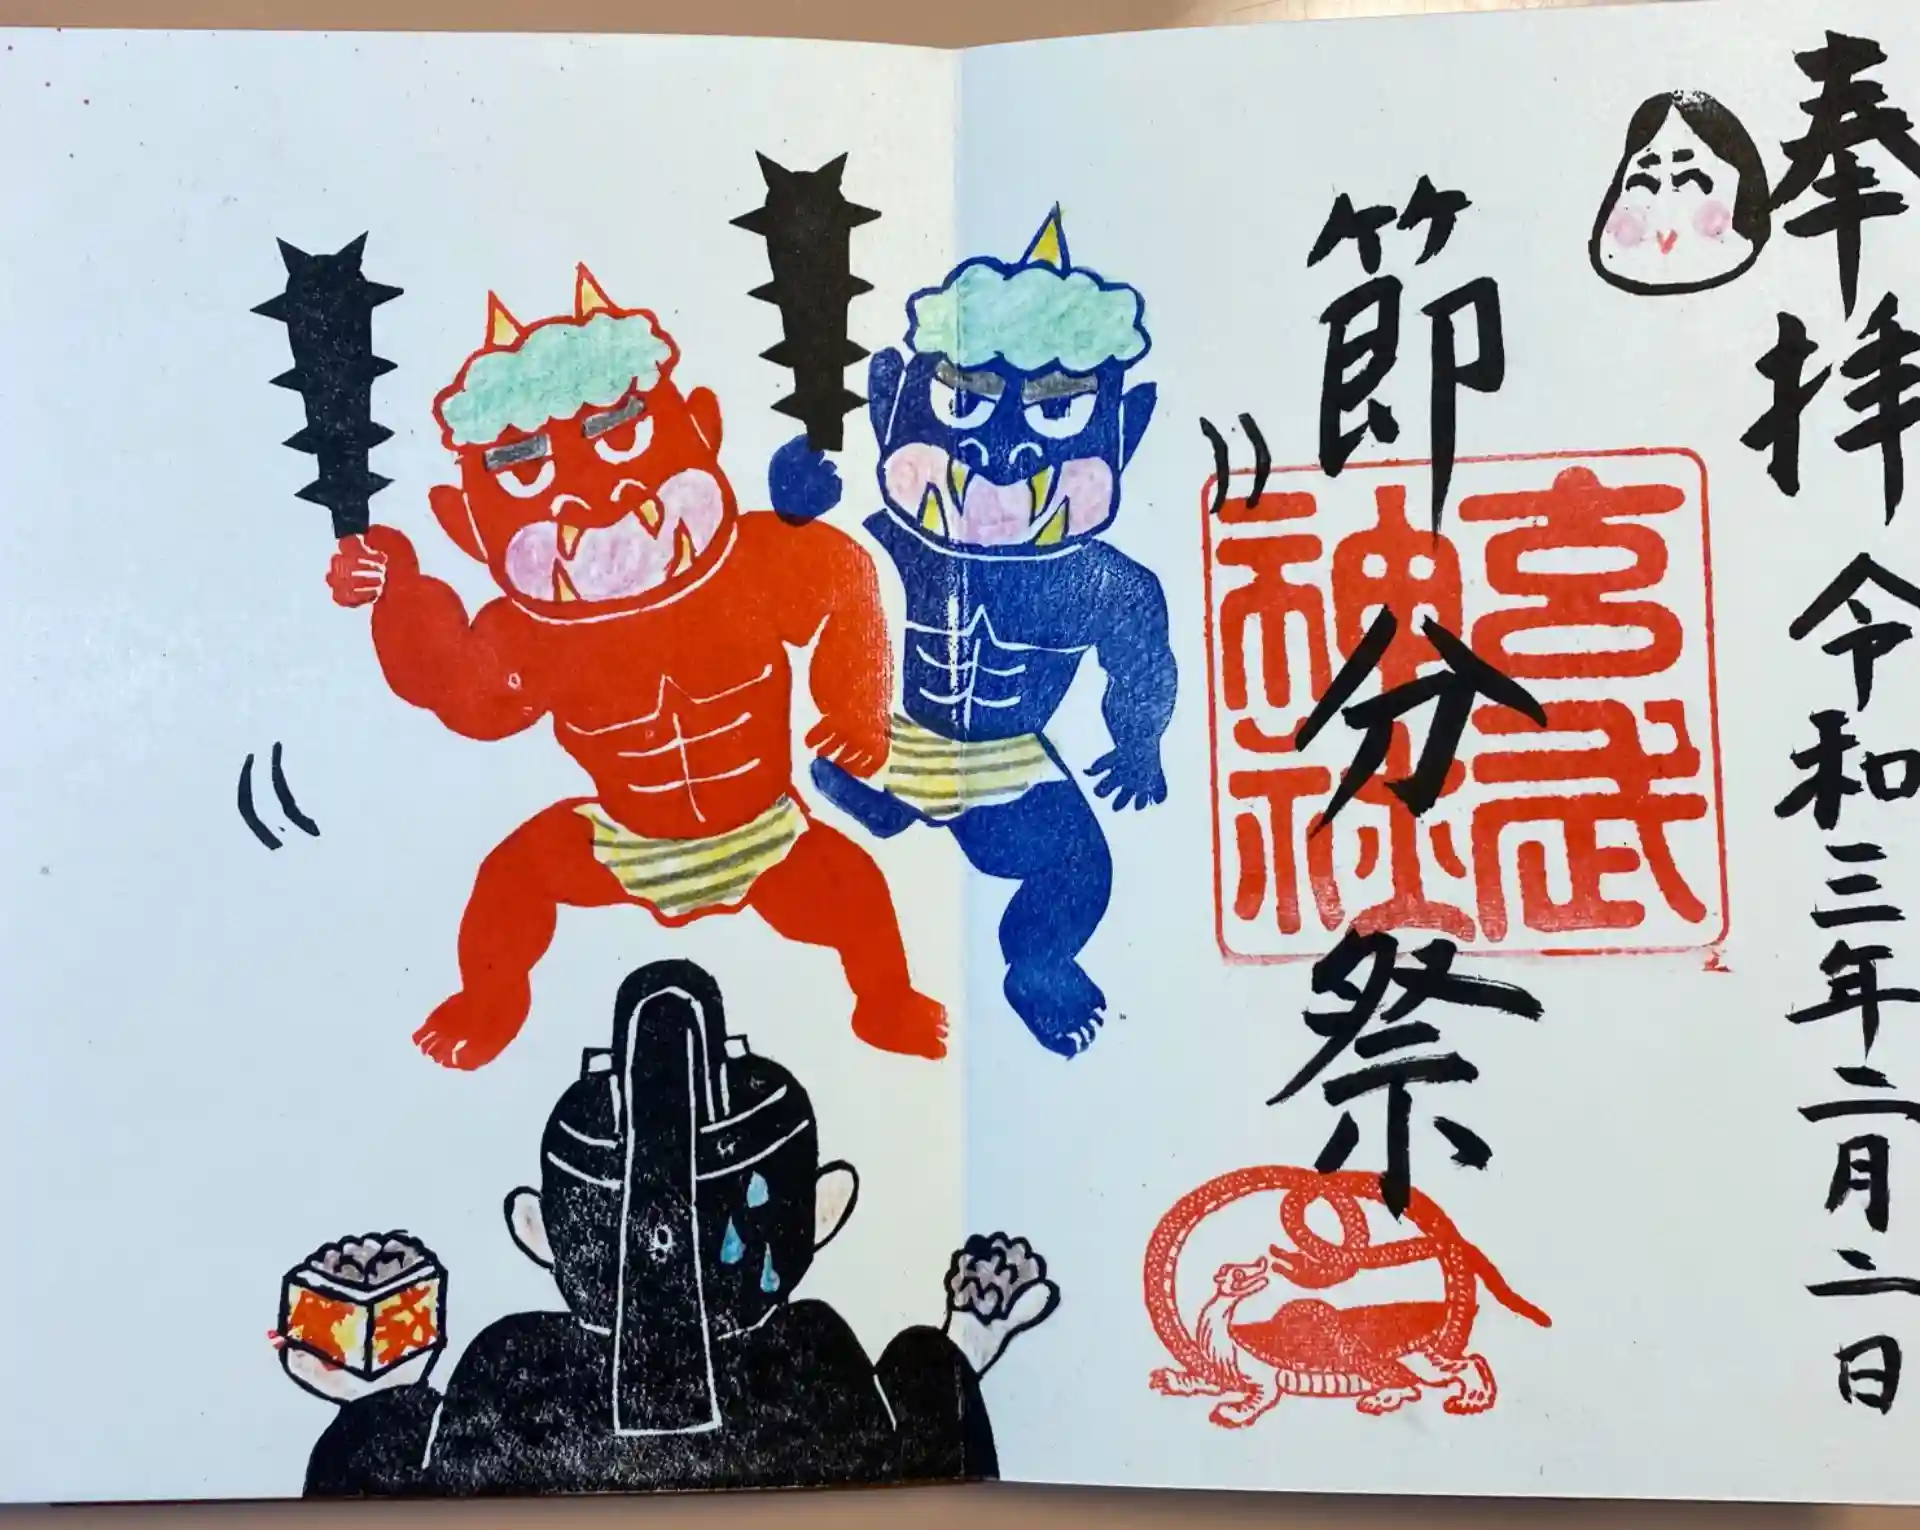 奉拝 令和三年二月二日
節分祭
宮武神社